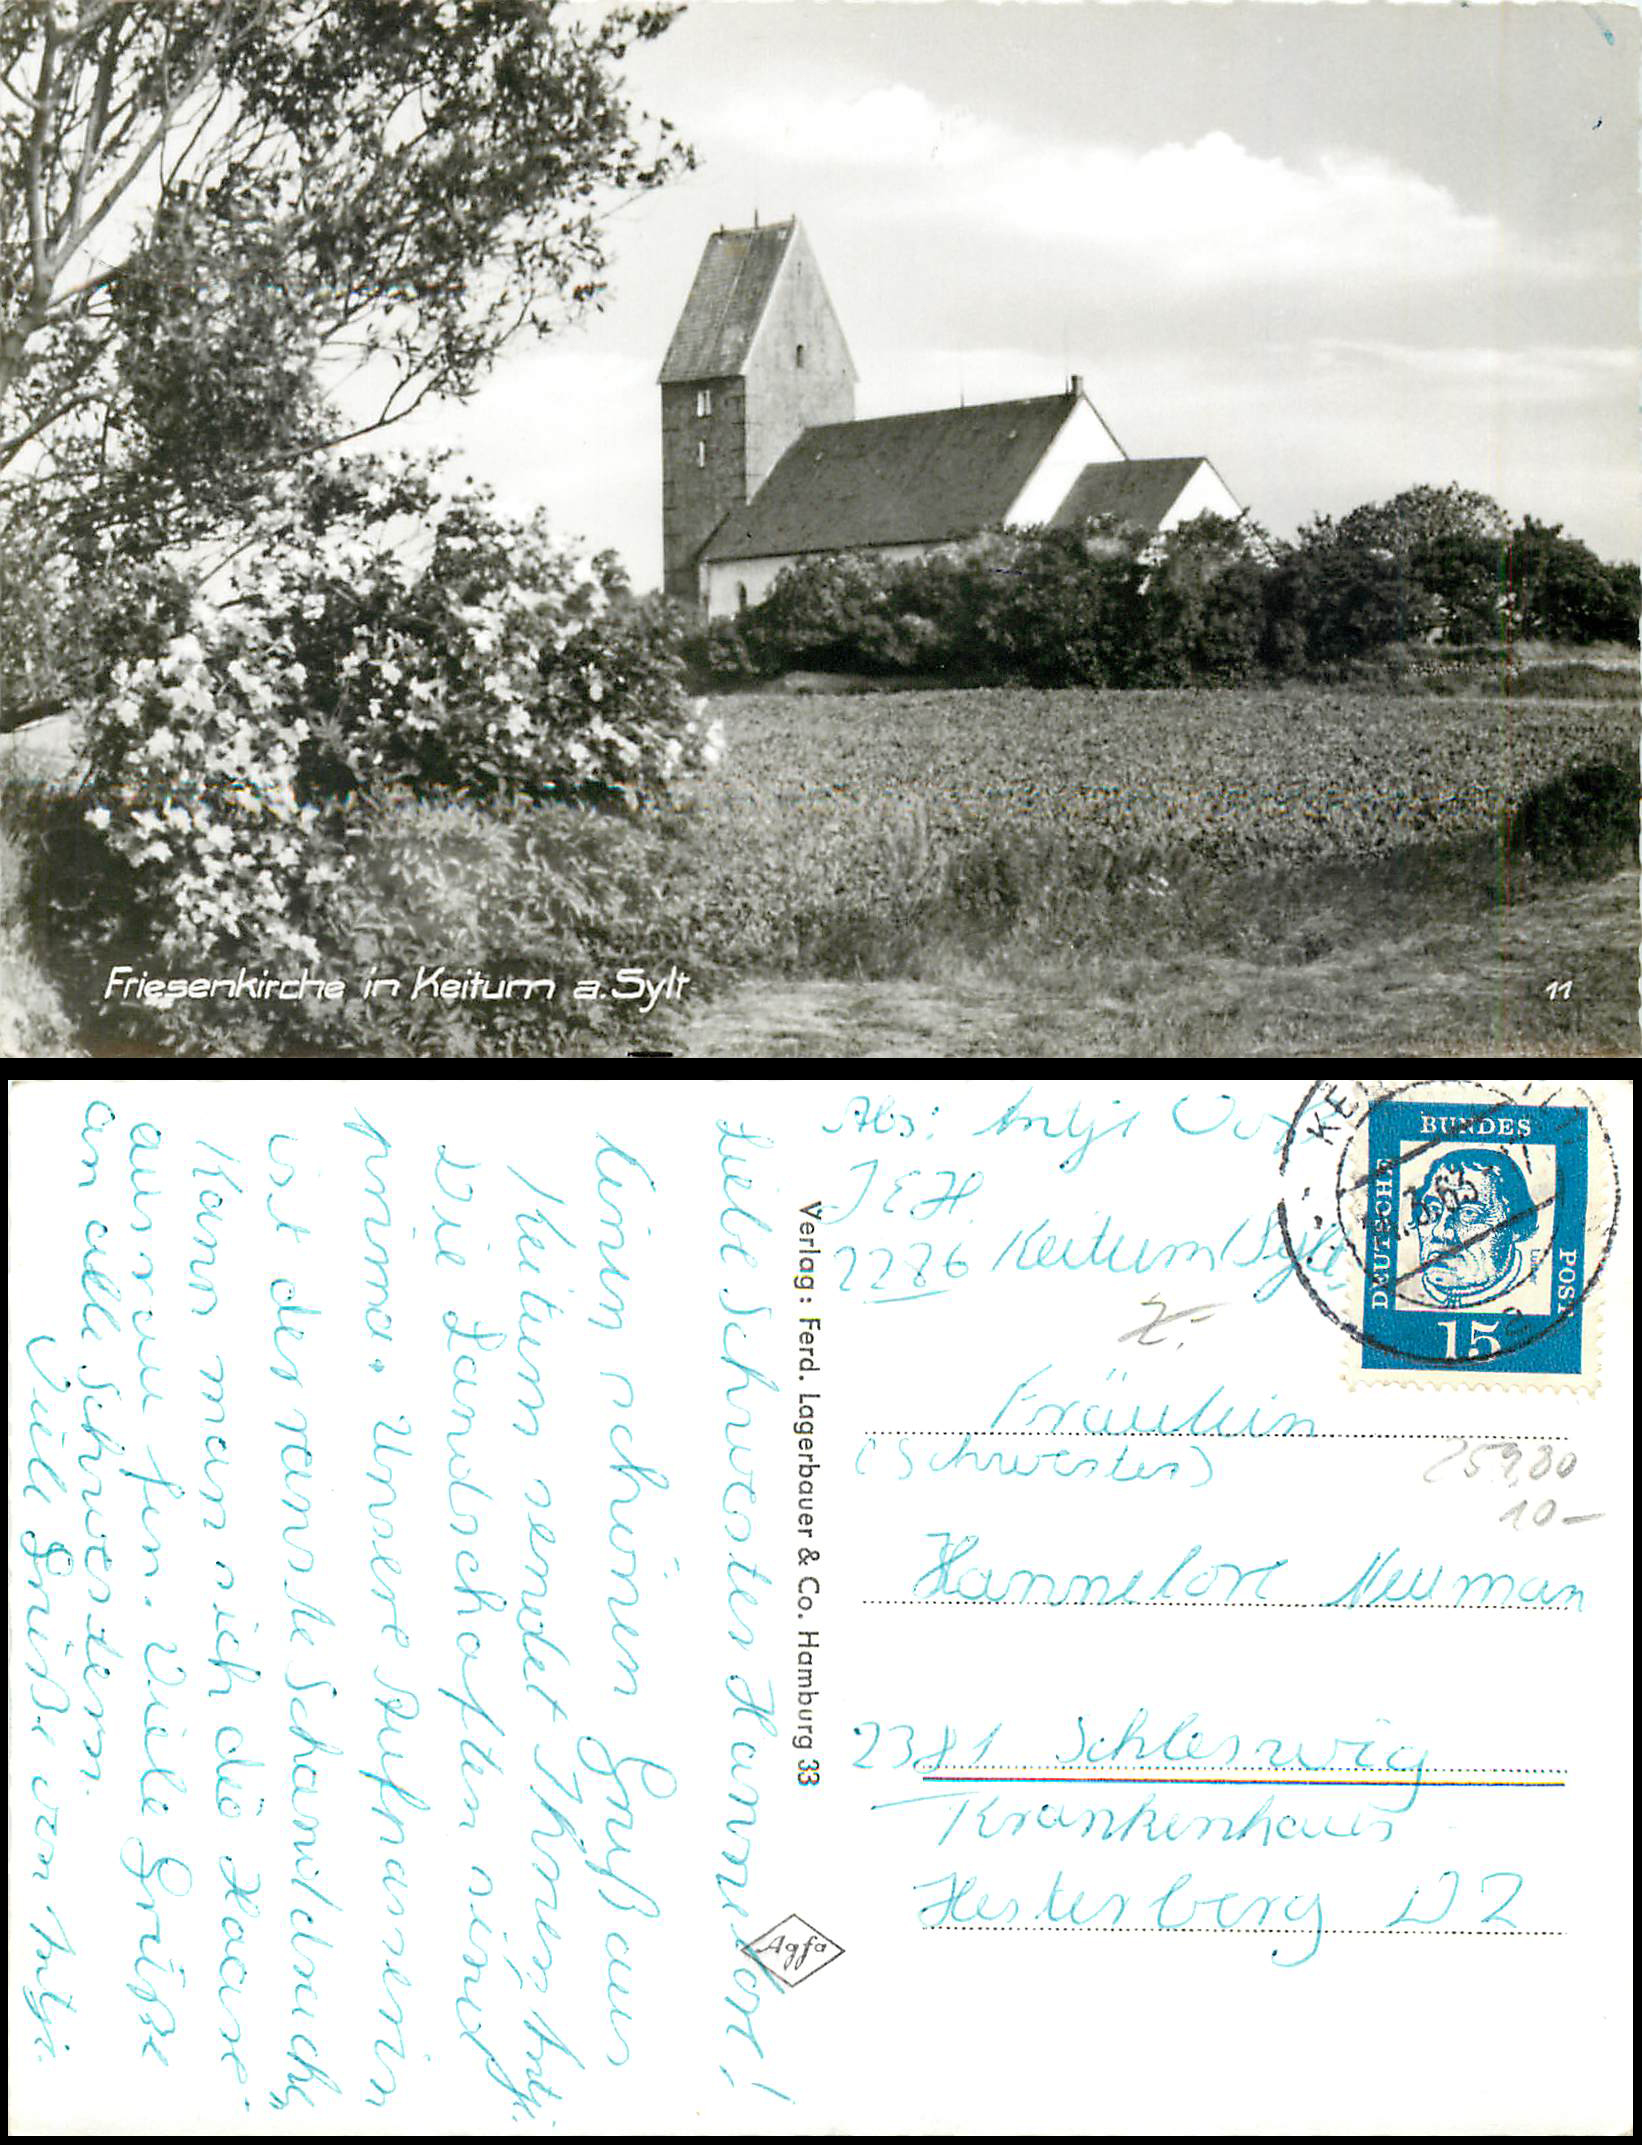 Friesenkirche in Keitum a. Sylt
11
Liebe Schwester Hannelore!
Einen schönen Gruß aus
Keitum sendet Ihnen, Antje.
Die Landschaften sind
prima. Unsere
ist der
Kann man sich die Haare
Viele Grüße
an alle Schwestern.
Viele Grüße von Antje.
Verlag: Ferd. Lagerbauer & Co. Hamburg 33
Agfa
Abs: Antje
JEH
2286 Keitum/Sylt
DEUTSCHE
BUNDES
POST
15
Fräulein
(Schwester)
Hannelore Neuman
2381 Schleswig
Krankenhaus
Hesterberg D2
259,80
10-